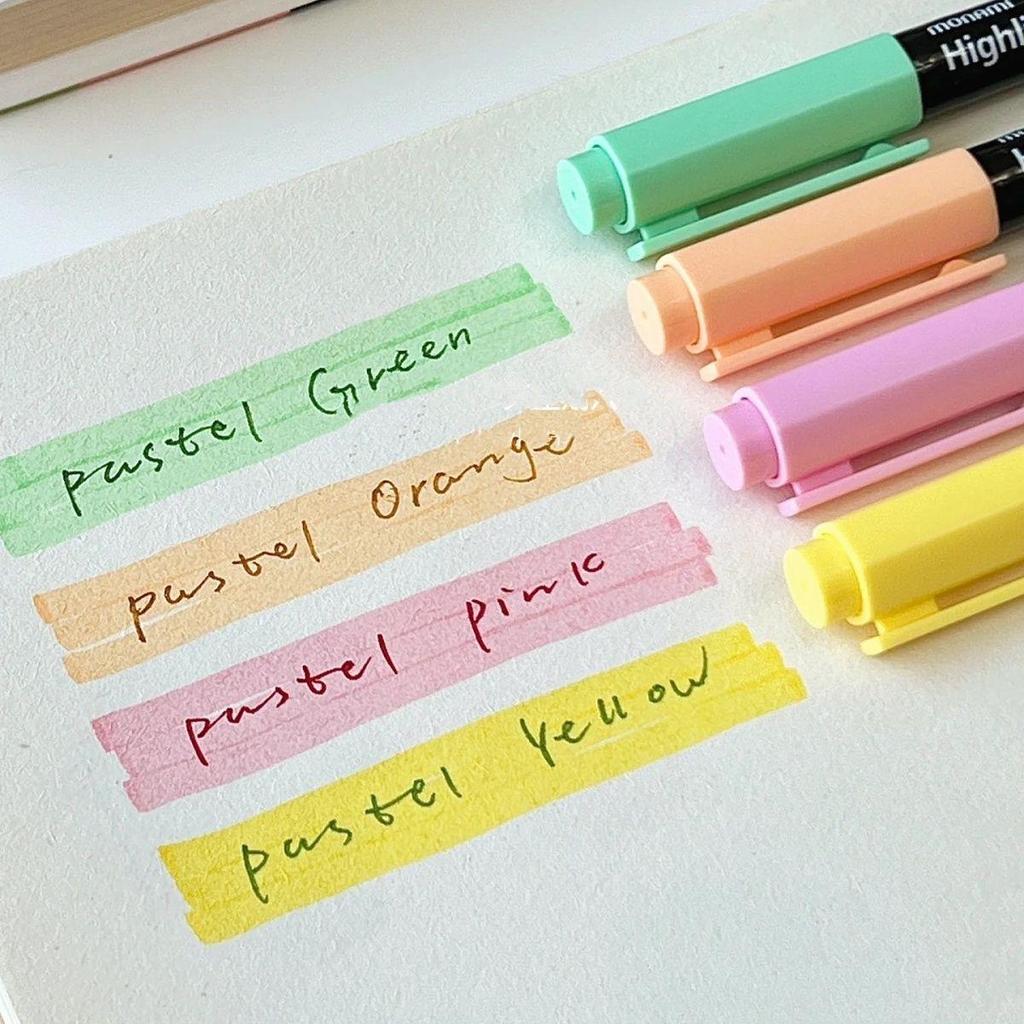 monami
Highli
pastel Green
pastel Orange
pastel pink
pastel Yellow